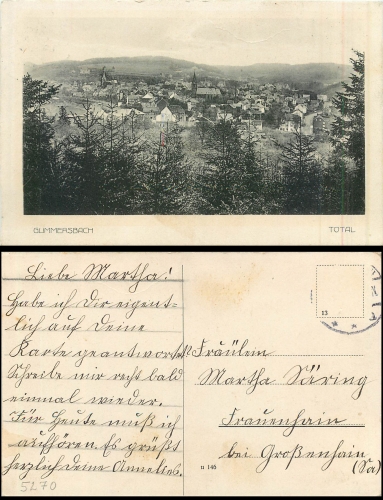 GUMMERSBACH
TOTAL
Liebe Martha!
Habe ich Dir eigent-
lich auf Deine
Karte geantwortet?
Schreibe mir recht bald
einmal wieder.
Für heute muß ich
aufhören. Es grüßt
herzlich deine Annelies.
5270
13
Fräulein
Martha Säring
Frauenhain
bei Großenhain
(Sa)
n 146